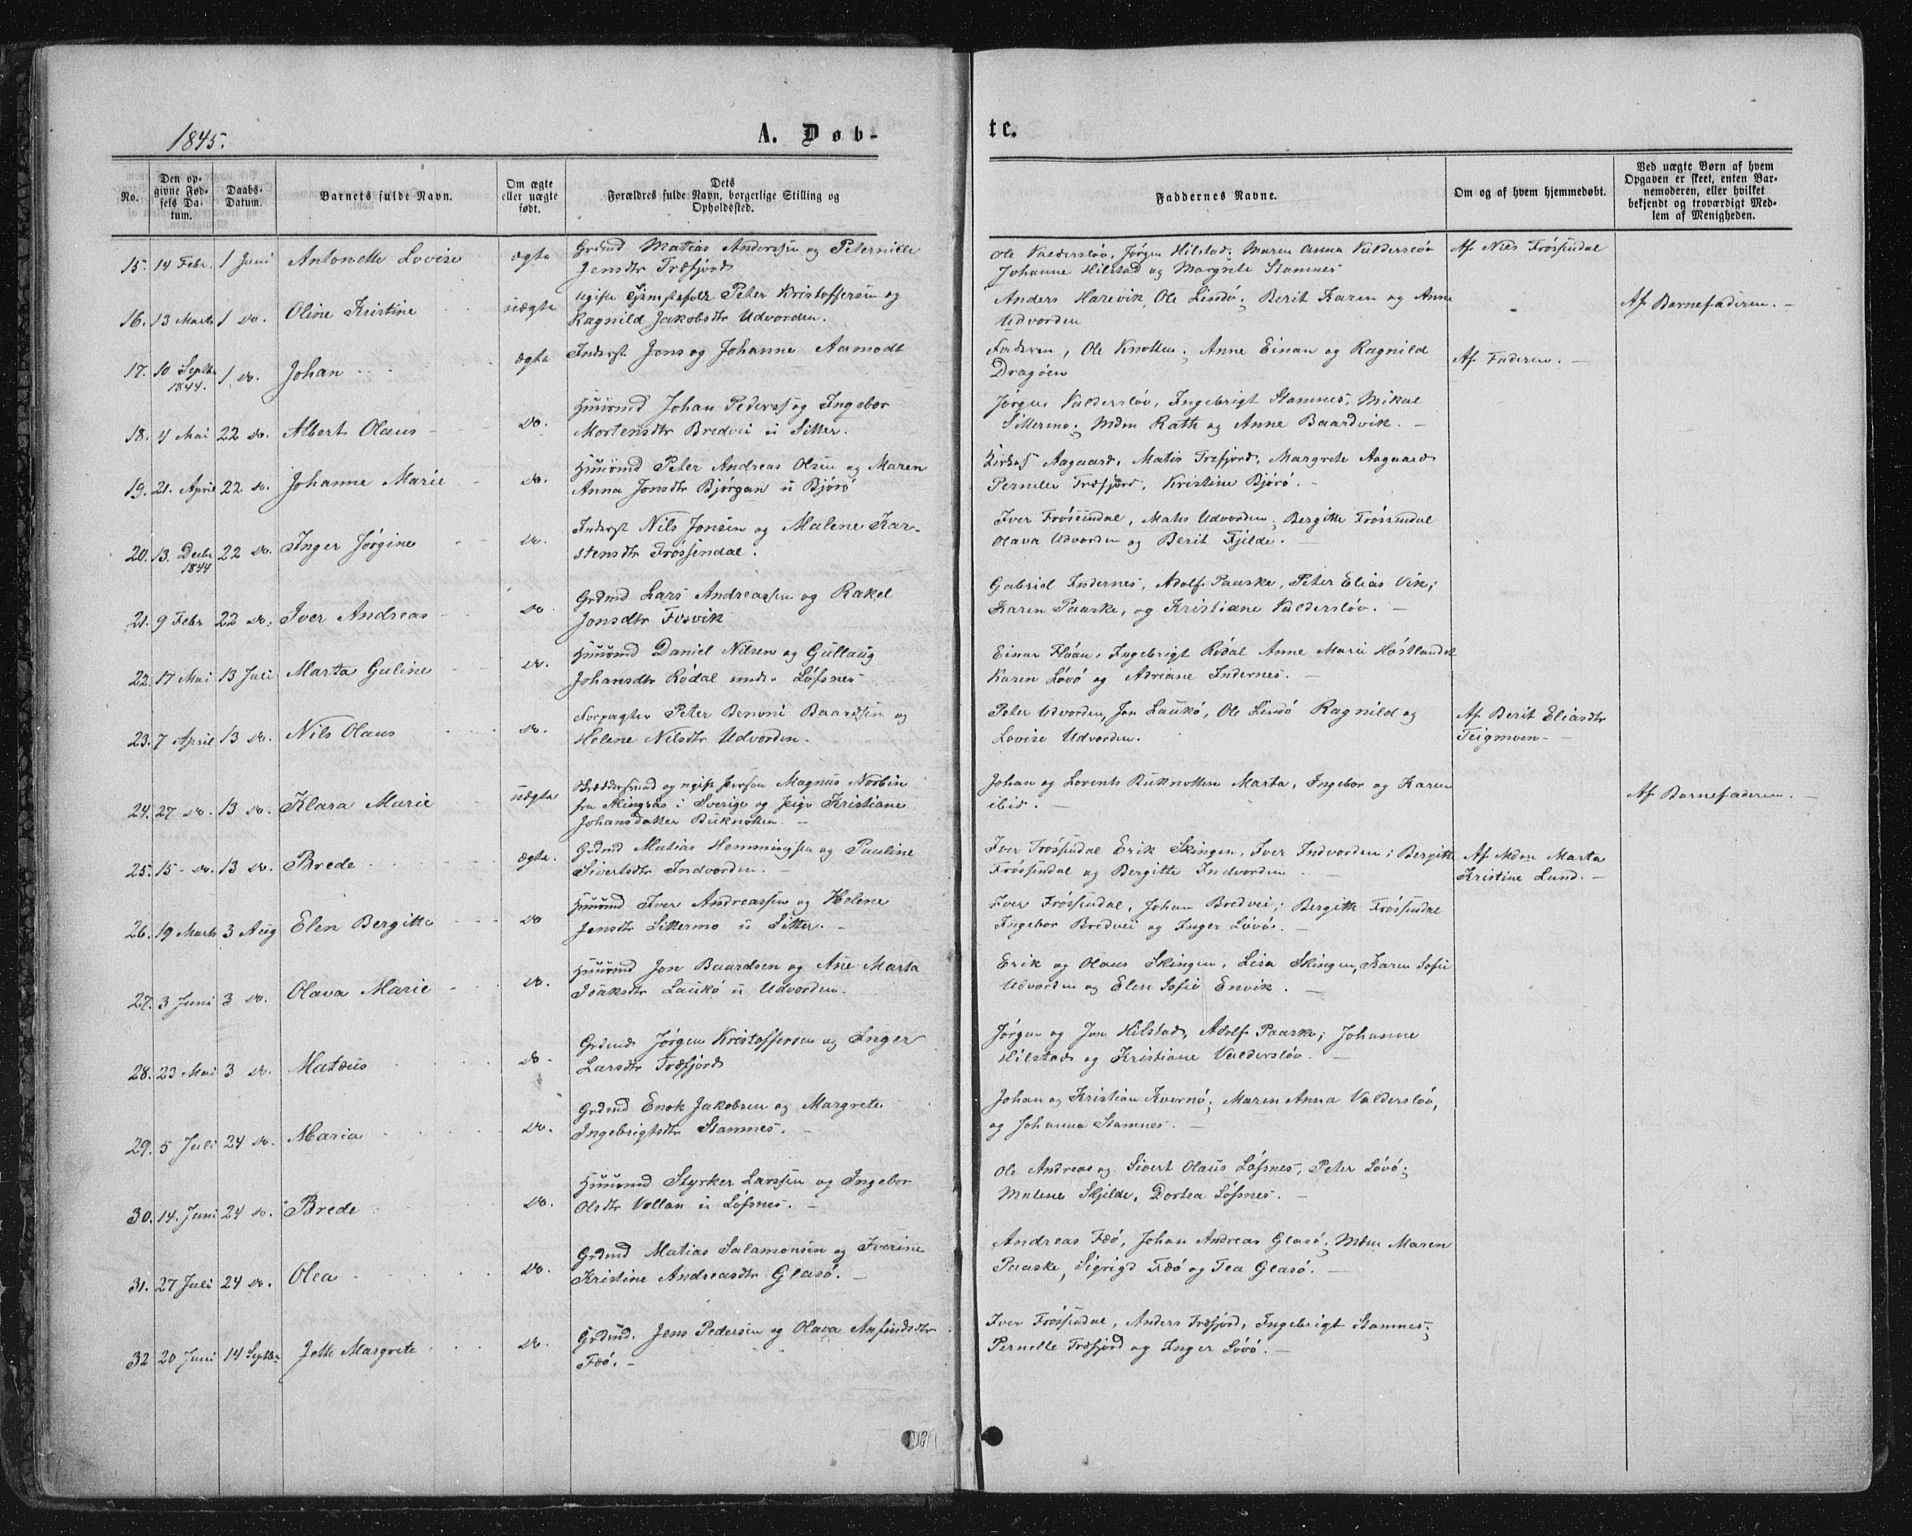 1845.
A. Døb-
te.
No.
Den op-
givne Fød-
sels Da-
tum.
Daabs-
Datum.
Barnets fulde Navn.
Om ægte
eller uægte
født.
Dets
Forældres fulde Navn, borgerlige Stilling og
Opholdssted.
Faddernes Navne.
Om og af hvem hjemmedøbt.
Ved uægte Børn af hvem
Opgaven er skeet, enten Bar-
nemoderen, eller hvilket
bekjendt og troværdigt Med-
lem af Menigheden.
15. 14 Febr. 1 Juni Antonette Lovise ægte
Grdmd Matias Anderssen og Peternille
Jensdtr Træfjord
Ole Valdersløv, Jørgen Hilstad, Maren Anna Valdersløv
Johanne Hilstad og Margrete Stamnes
Af Niels Frøssendal
16. 13 Marts 1 do. Oline Kristine uægte
Ugifte Peter Kristoffersen og
Ragnild Jakobsdtr Udvorden.
Anders Harevik, Ole Lindø, Berit Karen og Anne
Udvorden
Af Barnefaderen. -
17. 10 Septbr 1844. 1. do. Johan ægte
Inderst Jens og Johanne Aamodt
Faderen, Ole Knotten, Anne Einan og Ragnild
Dragøen
Af Faderen. -
18. 4 Mai 22 do. Albert Olaus do.
Huusmd Johan Pederss og Ingebor
Mortensdtr Bredvei u Sitter.
Jørgen Valdersløv, Ingebrigt Stamnes, Mikal
Sittermo, Mdm Rath og Anne Baardvik. -
19. 21. April 22 do. Johanne Marie do.
Huusmd Peter Andreas Olsen og Maren
Anna Jonsdtr Bjørgan u Bjørø
Aagaard, Matis Trefjord, Margrete Aagaard
Pernelle Træfjord, Kristine Bjørø. -
20. 13. Decbr 1844 22 do. Inger Jørgine do.
Inderst Nils Jonsen og Malene Kar-
stensdtr Frøssendal.
Iver Frøssendal, Mats Udvorden, Bergitte Frøssendal
Olava Udvorden og Berit Fjilde. -
21. 9 Febr 22 do. Iver Andreas do
Grdmd Lars Andreassen og Rakel
Jonsdtr Fosvik
Gabriel Indernes, Adolf Paaske, Peter Elias Vik;
Karen Paaske, og Kristiane Valdersløv. -
22. 17 Mai 13 Juli Marta Guline do.
Huusmd Daniel Nilsen og Gullaug
Johansdtr Rødal under Løfsnes
Einar Fløan, Ingebrigt Rødal Anne Marie Høstlandet
Karen Løvø og Adriane Indernes. -
23. 7 April 13 do. Nils Olaus do.
Forpagter Peter Benoni Baardsen og
Helene Nilsdtr Udvorden.
Peter Udvorden, Jon Laukø, Ole Lindø Ragnild og
Lovise Udvorden. -
Af Berit Eliasdtr
Teigmoen -
24. 27 do. 13 do. Klara Marie uægte
og ugift Person Magnus Norbin
fra Alingsås i Sverige og Pige Kristiane
Johansdatter Buknotten. -
Johan og Lorents Buknotten Marta, Ingebor og Karen
ibid. -
Af Barnefaderen. -
25. 15 - do. 13 do. Brede ægte.
Grdmd Matias Hemmingsen og Pauline
Sivertsdtr Indvorden. -
Iver Frøssendal Erik Skingen, Iver Indvorden; Bergitte
Frøssendal og Bergitte Indvorden
Af Mdm Marta
Kristine Lund. -
26. 19 Marts 3 Aug Elen Bergitte do
Huusmd Iver Andreassen og Helene
Jensdtr Sittermo u Sitter. -
Iver Frøssendal, Johan Bredvei; Bergitte Frøssendal
Ingebor Bredvei og Inger Løvø. -
27. 3 Juni 3 do. Olava Marie do.
Huusmd Jon Baardsen og Ane Marta
Isaksdtr Laukø u Udvorden.
Erik og Olaus Skingen, Lisa Skingen, Karen Sofie
Udvorden og Elen Sofie Envik. -
28. 23 Mai 3 do. Matæus do.
Grdmd Jørgen Kristoffersen og Inger
Larsdtr Træfjord
Jørgen og Jon Hilstad, Adolf Paaske; Johanne
Hilstad og Kristiane Valdersløv. -
29. 5 Juli 24 do. Maria do.
Grdmd Enok Jakobsen og Margrete
Ingebrigtsdtr Stamnes. -
Johan og Kristian Kvernø; Maren Anna Valdersløv,
og Johanna Stamnes. -
30. 14. Juni 24 do. Brede do.
Huusmd Styrker Larssen og Ingebor
Olsdtr Vollan u Løfsnes. -
Ole Andreas og Sivert Olaus Løfsnes, Peter Løvø;
Malene Skjilde, Dortea Løfsnes. -
31. 27 Juli 24 do. Olea do.
Grdmd Matias Salamonsen og Iverine
Kristine Andreasdtr Glasø. -
Andreas Fæø, Johan Andreas Glasø; Mdm Maren
Paaske, Sigrigd Fæø og Tea Glasø. -
32. 20 Juni 14 Septbr Jette Margrete do.
Grdmd. Jens Pedersen og Olava Anfindsdtr
Fæø. -
Iver Frøssendal, Anders Træfjord, Ingebrigt Stamnes;
Pernelle Træfjord og Inger Løvø. -